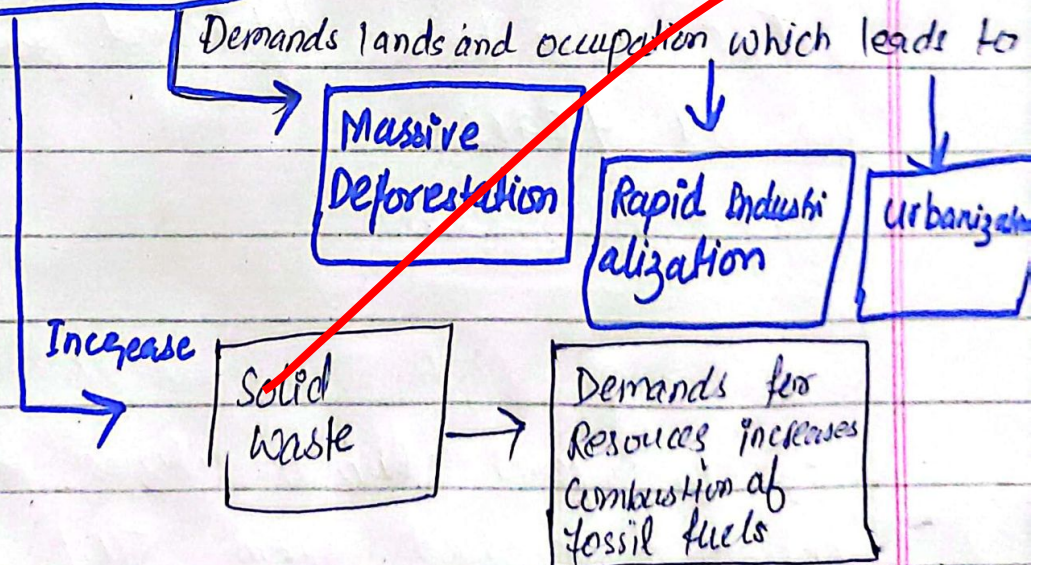 Demands lands and occupation which leads to
Massive
Deforestation
Rapid Industri
alization
Urbanization
Increase
Solid
Waste
Demands for
Resouces increases
Combustion of
Fossil fuels